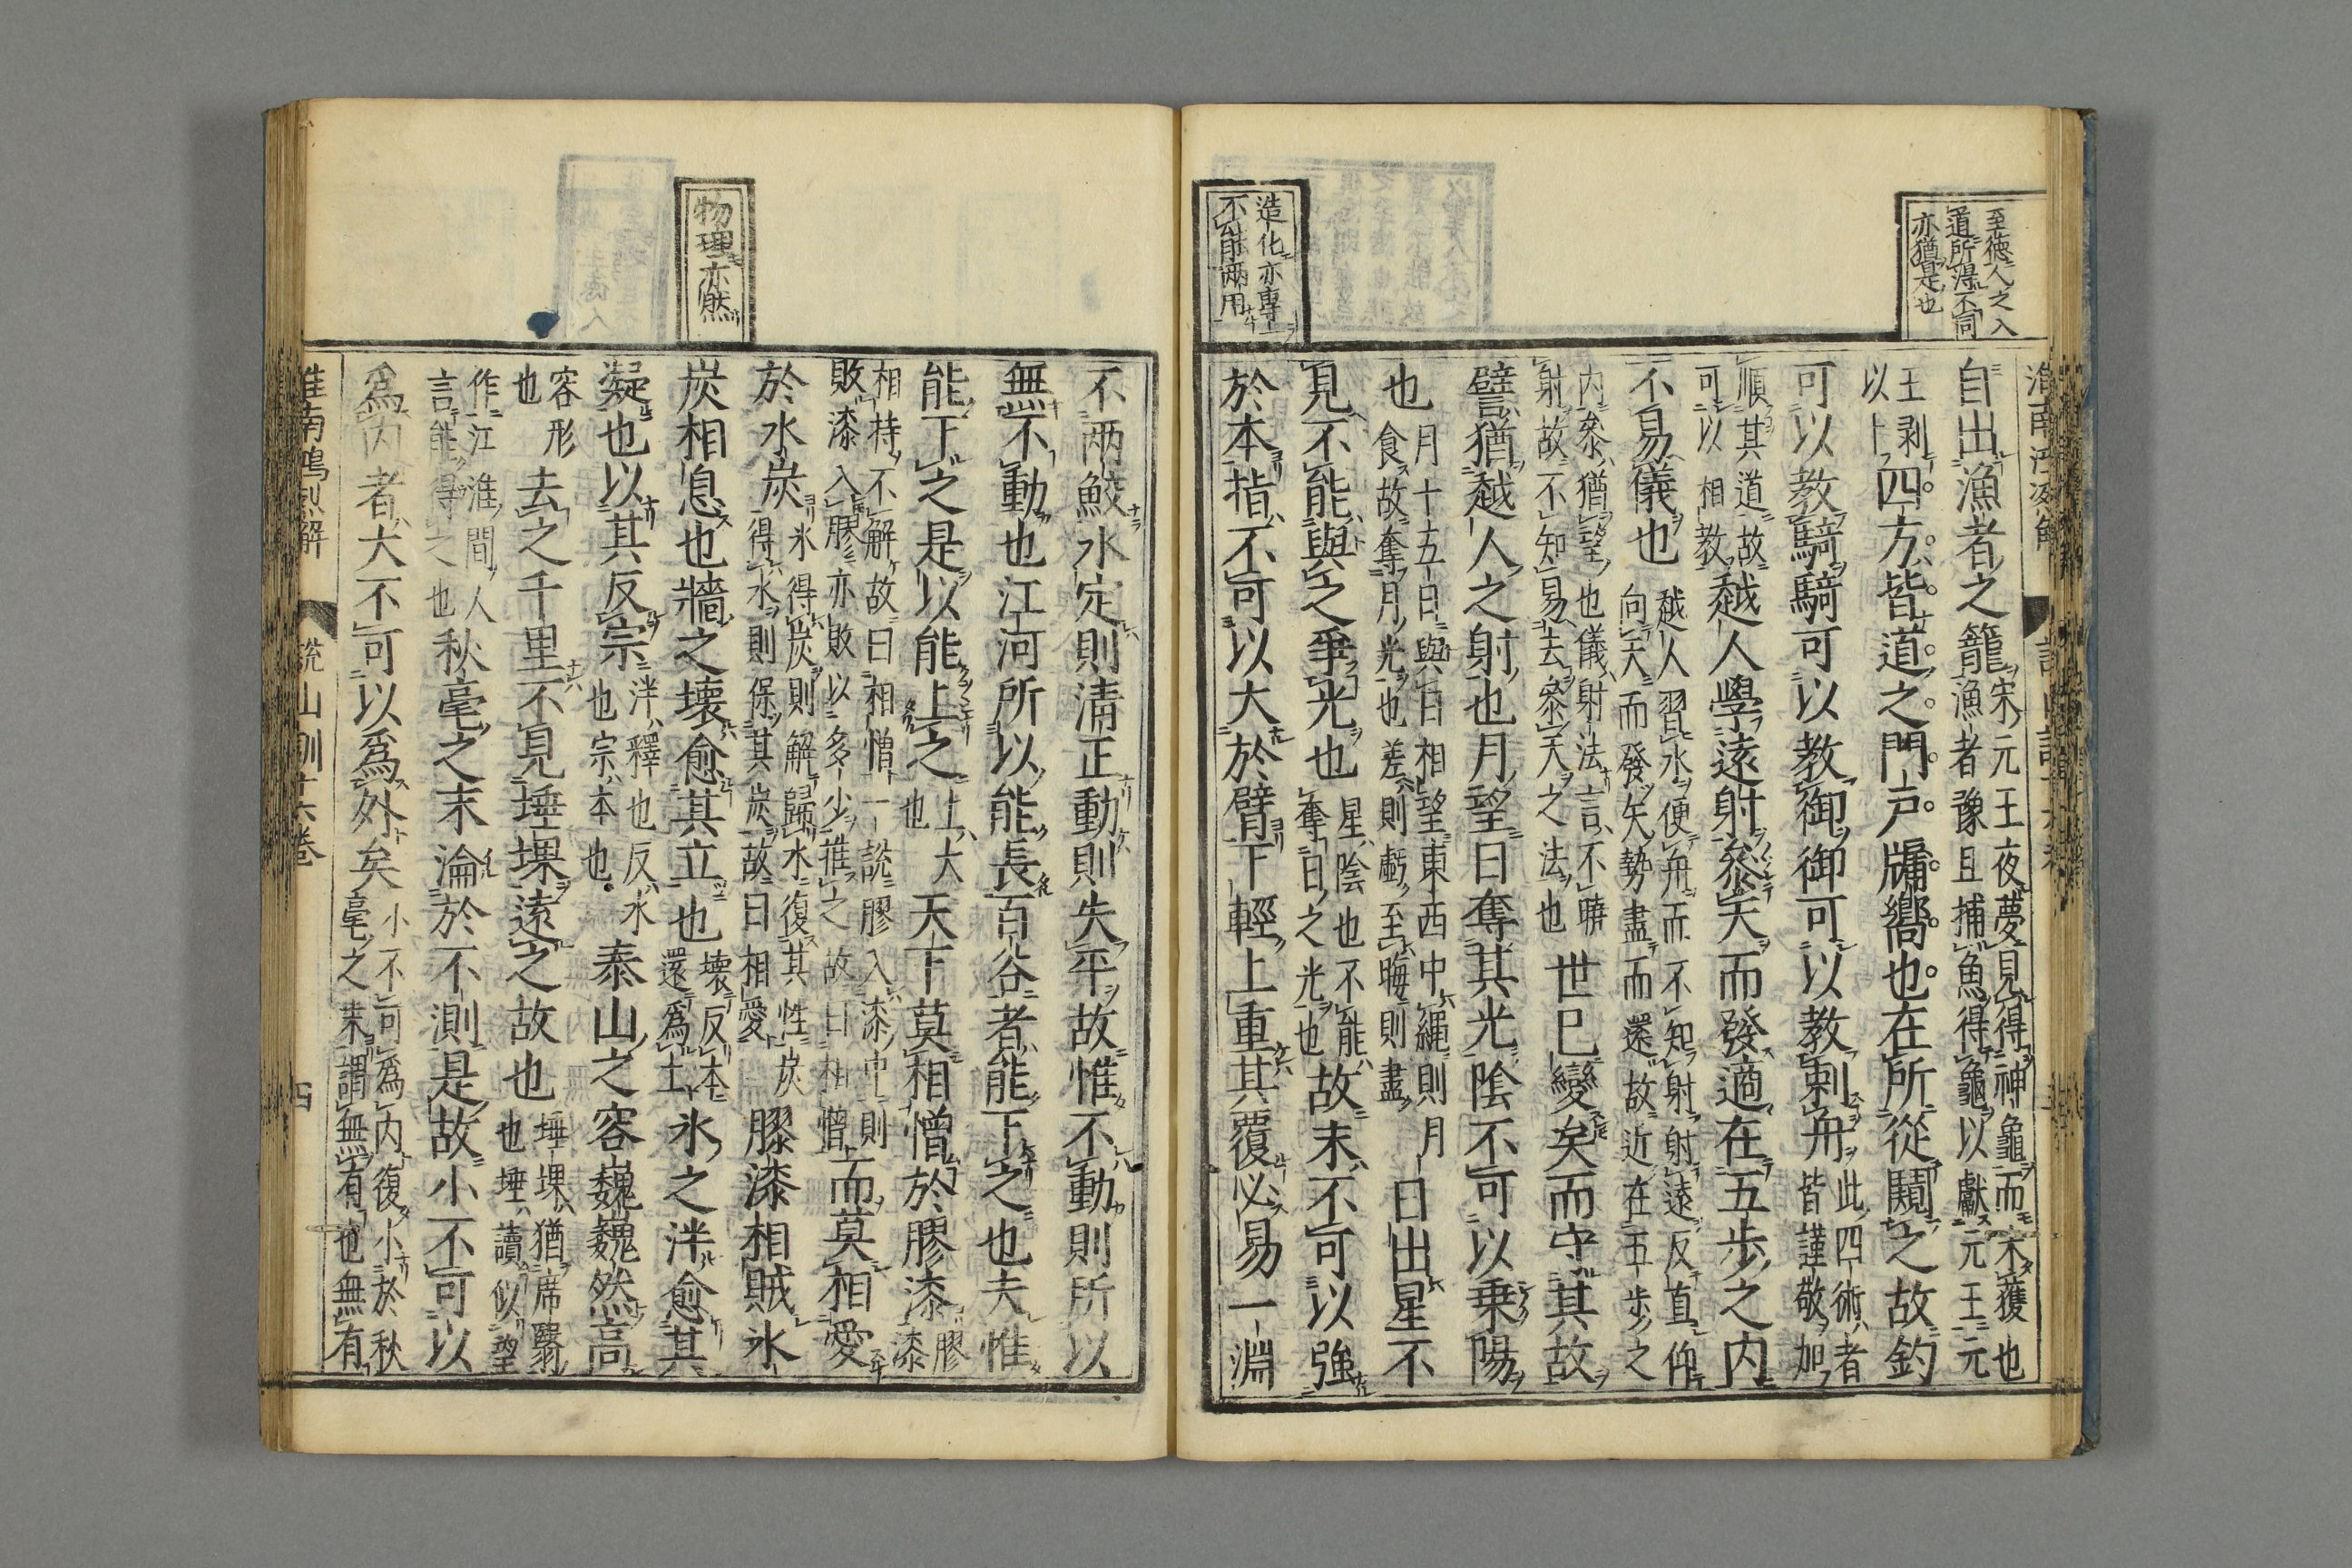 至德人之入
道所得不同
亦猶是也
造化亦專一
不能兩用
自出漁者之籠宋元王夜夢見得神龜而未獲也
漁者豫且捕魚得龜以獻元王元
王剥
以卜四方皆道之門戸牖嚮也在所從闚之故釣
可以教騎騎可以教御御可以教刺舟此四術者
皆謹敬加
順其道故
可以相教越人學遠射參天而發適在五步之内
不易儀也越人習水便舟而不知射射遠反直仰
向天而發矢勢盡而還故近在五步之
内參猶望也儀射法言不曉
射故不知易去參天之法也世已變矣而守其故
譬猶越人之射也月望日奪其光陰不可以乗陽
也月十五日與日相望東西中繩則月
食故奪月光也差則虧至晦則盡日出星不
見不能與之爭光也星陰也不能
奪日之光也故末不可以強
於本指不可以大於臂下輕上重其覆必易一淵
物理亦然
不兩鮫水定則清正動則失平故惟不動則所以
無不動也江河所以能長百谷者能下之也夫惟
能下之是以能上之上大
也天下莫相憎於膠漆膠
漆
相持不解故曰相憎一説膠入漆中則
敗漆入膠亦敗以多少推之故曰相憎而莫相愛
於水炭氷得炭則解歸水復其性炭
得水則保其炭故曰相愛膠漆相賊氷
炭相息也牆之壊愈其立也壊反本
還爲土氷之泮愈其
凝也以其反宗泮釋也反水
也宗本也泰山之容巍巍然高
容形
也去之千里不見埵堁遠之故也埵堁猶席翳
也埵讀似望
作江淮間人
言能得之也秋毫之末淪於不測是故小不可以
爲内者大不可以爲外矣小不可爲内復小於秋
毫之末謂無有也無有
淮南鴻烈解
説山訓十六巻
四